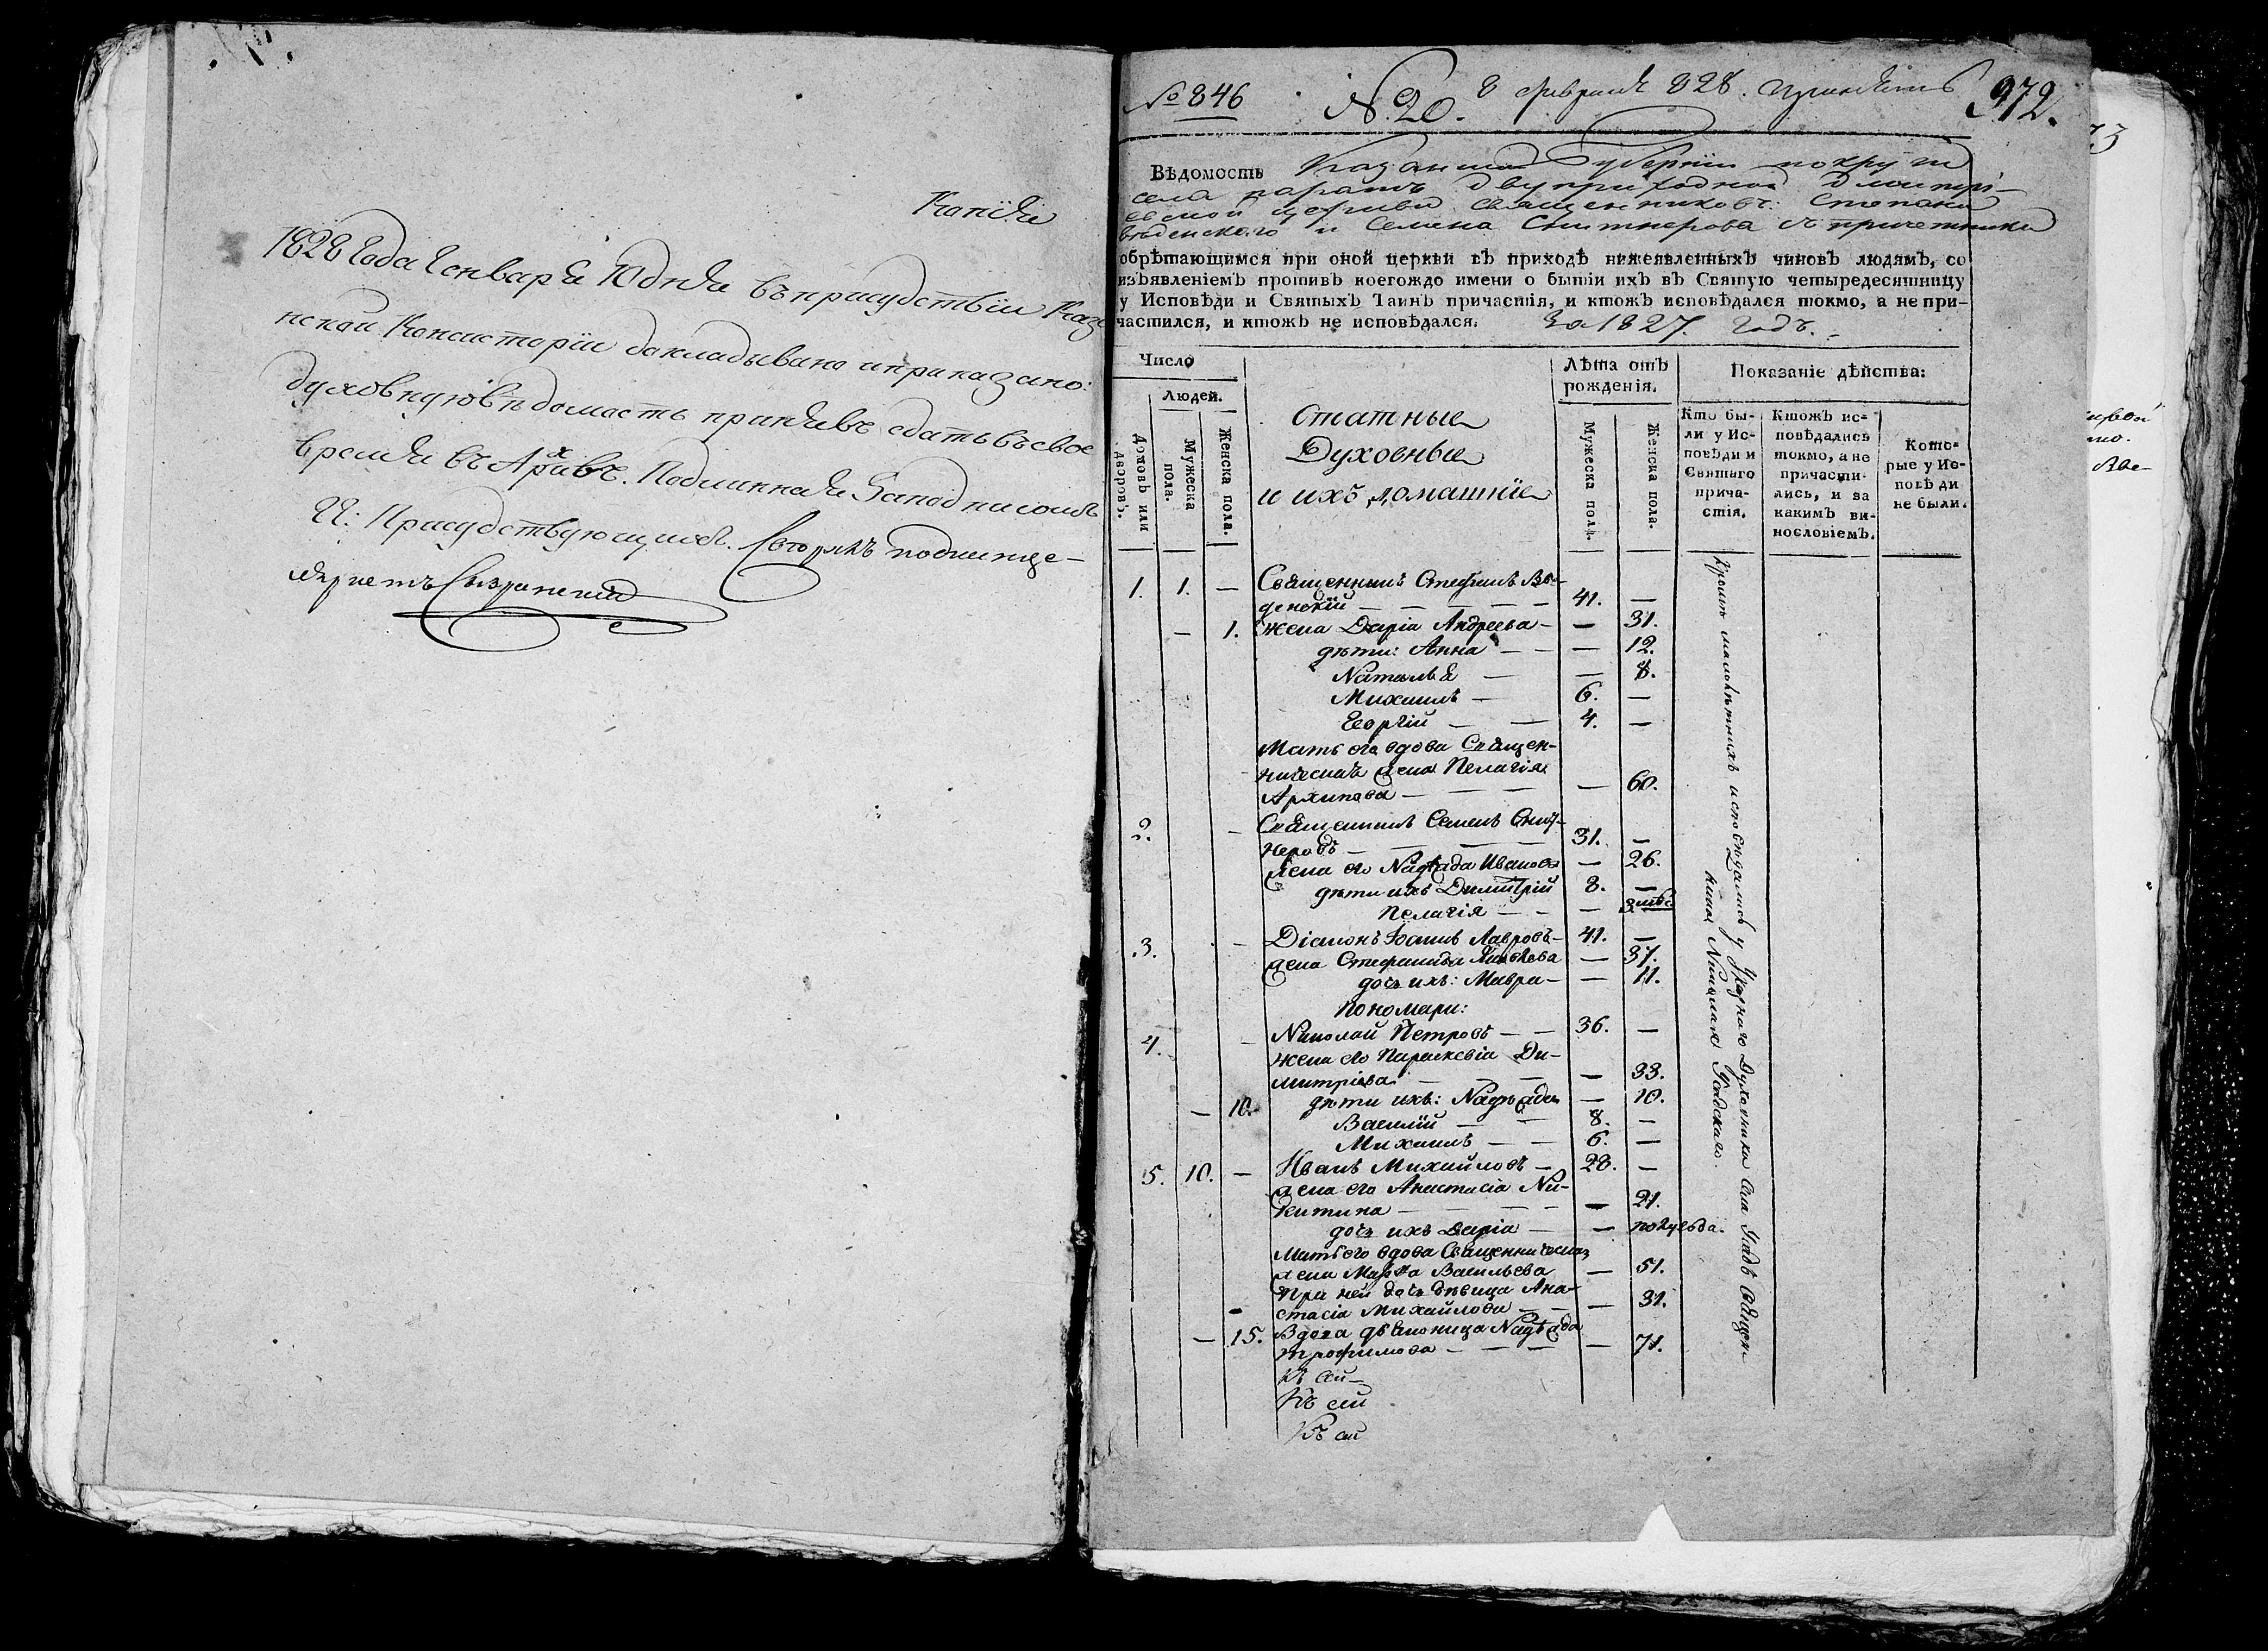 Копія
1828 Года Генваря 10 дня въ присудствіи Каза
нской Консисторіи докладывано и приказано:
духовную вѣдомость принявъ сдать въ свое
время въ Архивъ. Подлинная За подписомъ
ГГ: Присудствующихъ. Съ подлинн
Сызранскій
№ 846
№. 20.
8 февраля 828. 
972.
Вѣдомость Казанской Губерніи
села двуприходной Дмитрі-
евской церкви священниковъ: Степана
Введенскаго и Семена Снитнерова съ причетники
обрѣтающимся при оной церкви въ приходѣ нижеявленныхъ чиновъ людямъ, со
изъявленіемъ противъ коегождо имени о бытіи ихъ въ Святую четыредесятницу
у Исповѣди и Святыхъ Таинъ причастія, и ктожъ исповѣдался токмо, а не при-
частился, и ктожъ не исповѣдался. За 1827. Годъ.
Число
Людей.
Домовъ или дворовъ.
Мужеска пола.
Женска пола.
Статные
Духовные
и ихъ домашніе
Лѣта отъ
рожденія.
Мужеска пола.
Женска пола.
Показаніе дѣйства:
Кто бы-
ли у Ис-
повѣди и
Святаго
прича-
стія.
Ктожъ ис-
повѣдались
токмо, а не
причасти-
лись, и за
какимъ ви-
нословіемъ.
Кото-
рые у Ис-
повѣди
не были.
1. 1. — Священникъ Стефанъ Вве-
денскій — 41. —
— 1. жена Дарія Андреева — — 31.
дѣти: Анна — — 12.
Наталья — — 8.
Михаилъ — 6. —
Георгій — 4. —
Мать его вдова Священ-
ническая жена Пелагія
Архипова — — 60.
2. — Священникъ Семенъ Снит-
неровъ — 31. —
жена его Надежда Иванова — 26.
дѣти ихъ Димитрій 8. —
Пелагія — —
3. — Діаконъ Іоаннъ Лавровъ — 41. —
жена Стефанида Яковлева — 37.
дочь ихъ: Мавра — — 11.
Пономари:
4. — Николай Петровъ — 36. —
жена его Параскевія Ди-
митріева — — 33.
— 10. дѣти ихъ: Надежда — 10.
Василій — 8. —
Михаилъ — 6. —
5. 10. — Иванъ Михайловъ — 28. —
жена его Анастасія Ни-
китина — — 21.
дочь ихъ Дарія — — полугода.
Мать его вдова Священническая
жена Марѳа Васильева — 51.
При ней дочь дѣвица Ана-
стасія Михайлова — — 31.
— 15. Вдова дьяконица Надежда
Трофимова — — 71.
Къ сей
Къ сей
Къ сей
Кромѣ малолѣтнихъ исповѣдались у Уѣзднаго Духовника села Священ-
ника Николая